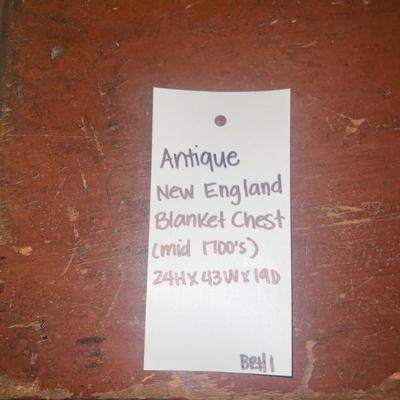 Antique
New England
Blanket Chest
(mid 1700's)
24H x 43W x 19D
BR#1